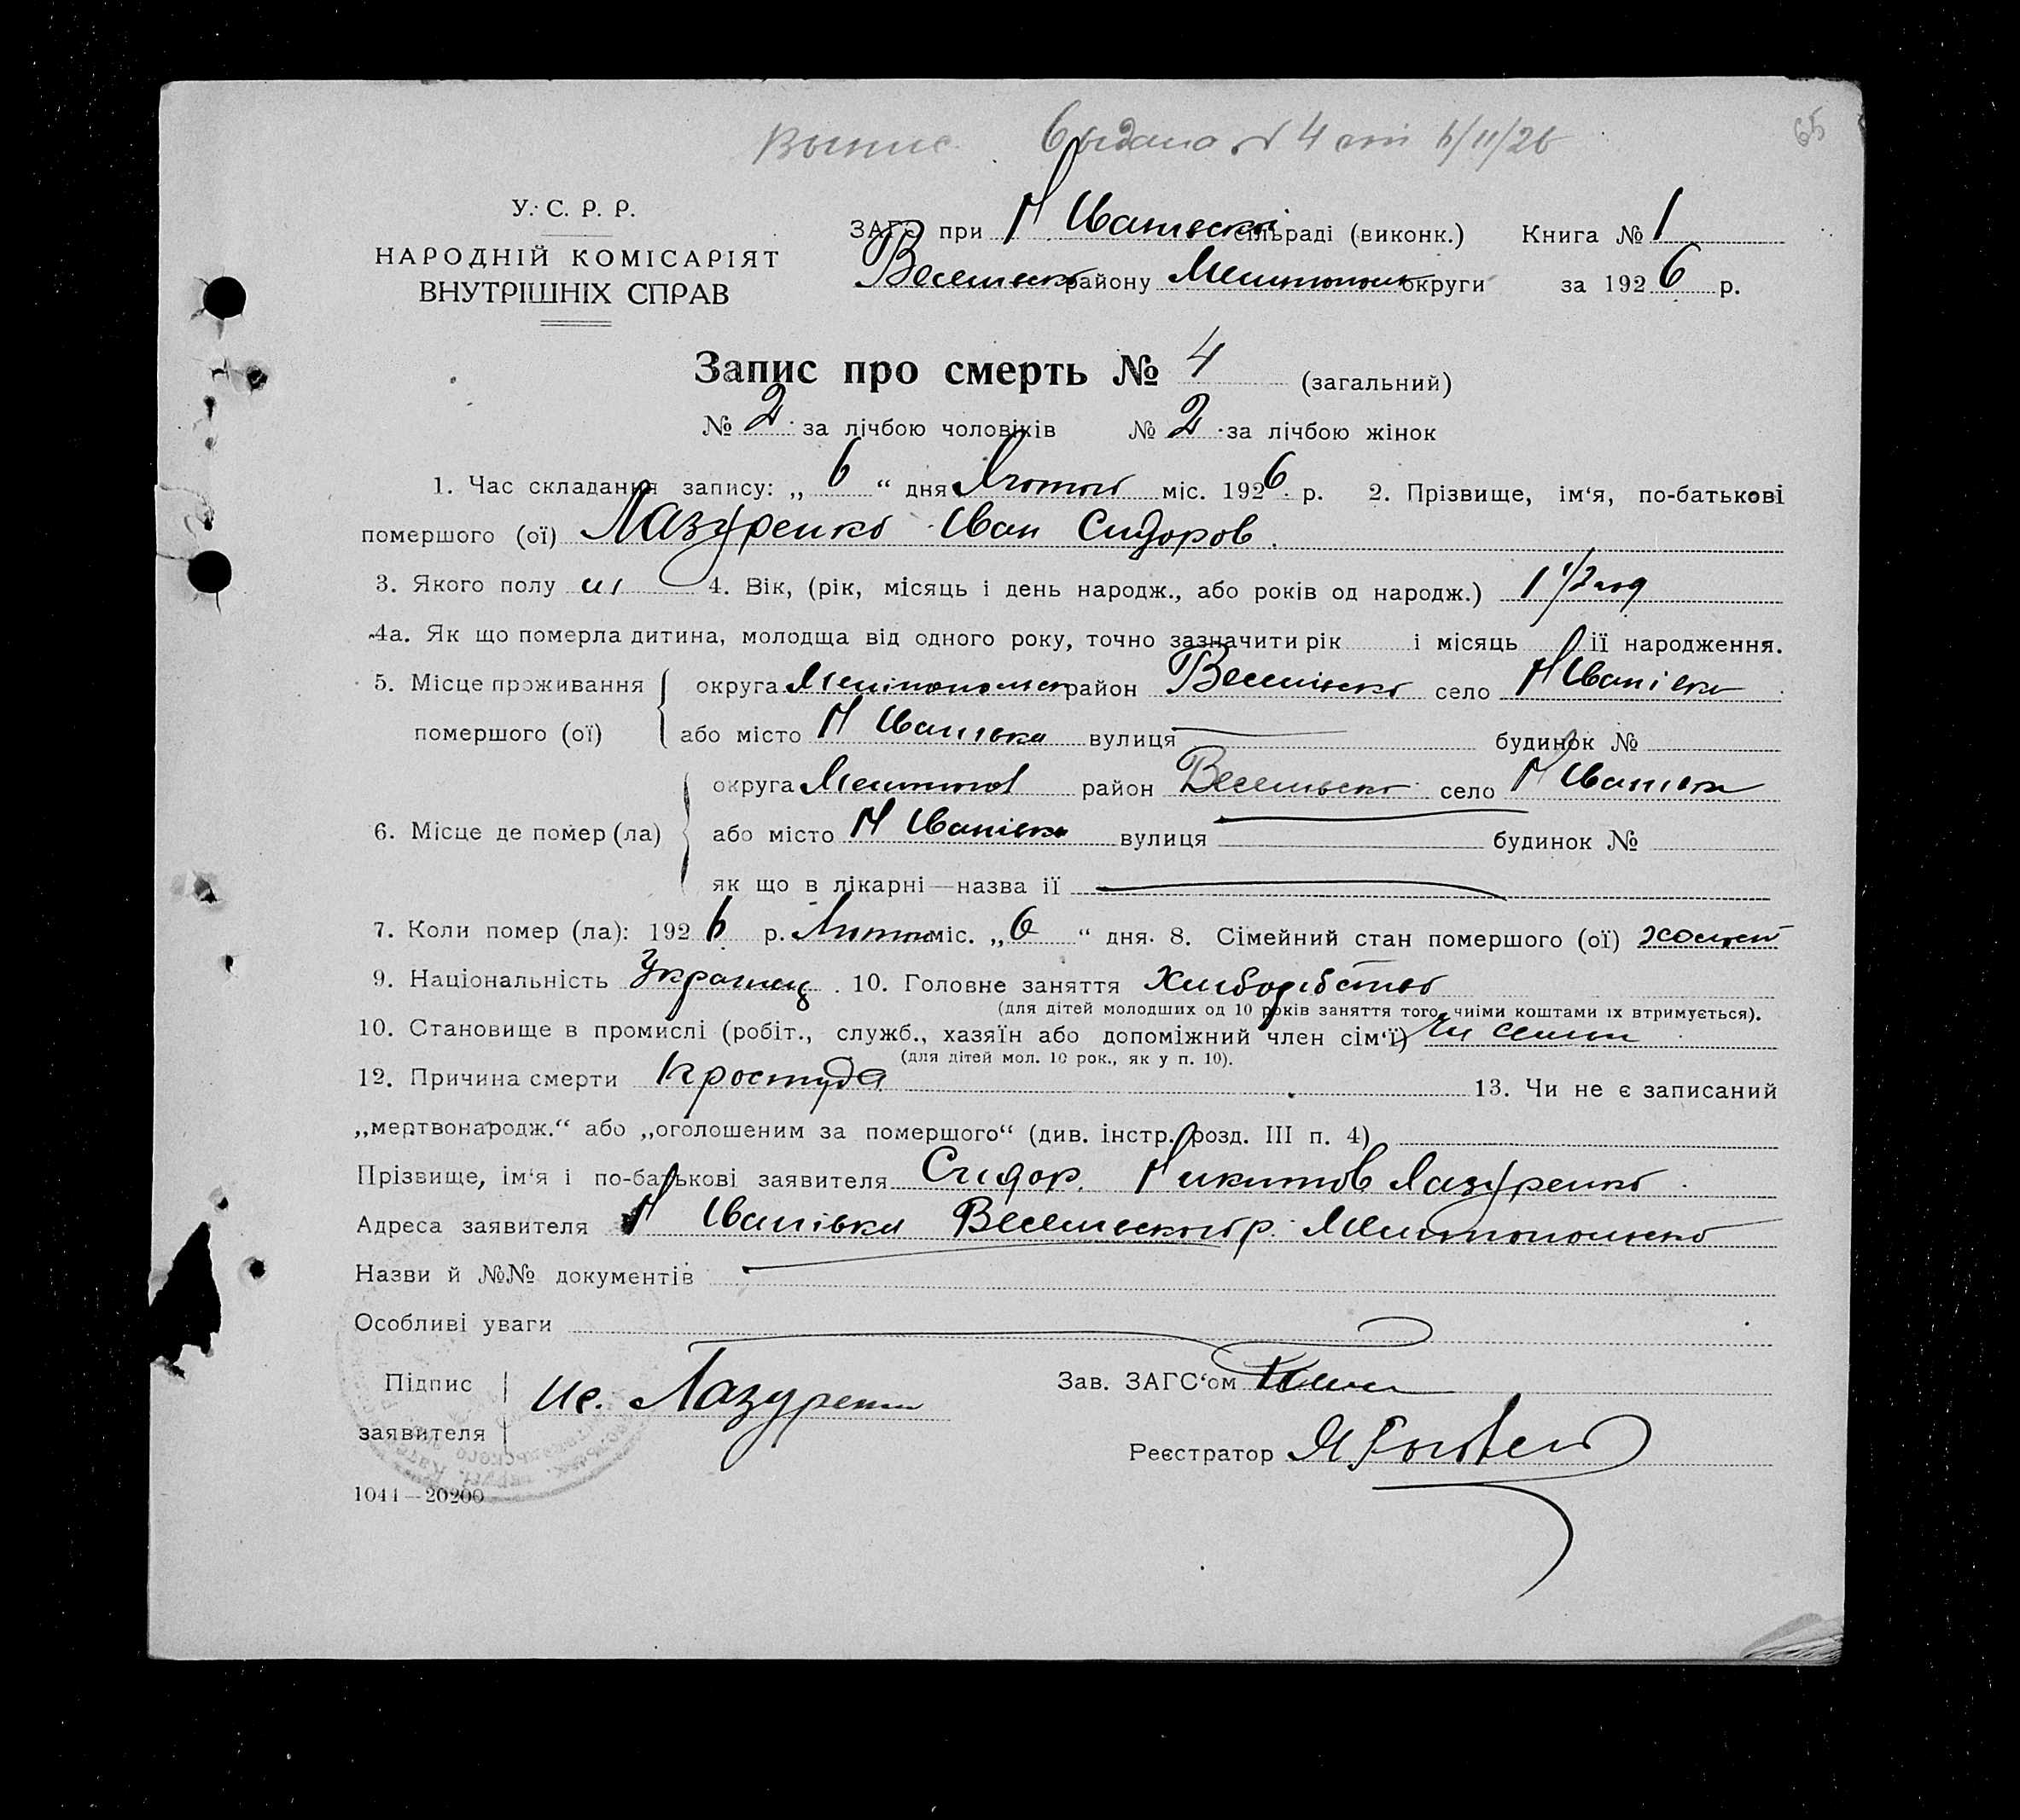 Выпис. Выдано № 4 от 6/II/26
65
У. С. Р. Р.
НАРОДНІЙ КОМІСАРІЯТ
ВНУТРІШНІХ СПРАВ
ЗАГС при Н Иванівскі сільраді (виконк.) Книга № 1
Веселівсько району Мелитополь округи за 1926 р.
Запис про смерть № 4 (загальний)
№ 2 за лічбою чоловіків № 2 за лічбою жінок
1. Час складання запису: „ 6 “ дня Лютого міс. 1926 р. 2. Прізвище, ім‘я, по-батькові
помершого (ої) Лазуренко Иван Сидоров.
3. Якого полу м 4. Вік, (рік, місяць і день народж., або років од народж.) 1 1/2 год
4а. Як що померла дитина, молодща від одного року, точно зазначити рік і місяць її народження.
5. Місце проживання округа Мелітопольск район Веселівсько село Н Иванівка
помершого (ої) або місто Н Иванівка вулиця будинок №
округа Мелитоп район Веселівсько село Н Иванівка
6. Місце де помер (ла) або місто Н Иванівка вулиця будинок №
як що в лікарні—назва її
7. Коли помер (ла): 1926 р. Лютого міс. „ 6 “ дня. 8. Сімейний стан помершого (ої) холост
9. Національність Украинец. 10. Головне заняття Хліборобство
(для дітей молодших од 10 років заняття того, чиїми коштами їх втримується).
10. Становище в промислі (робіт., служб., хазяїн або допоміжний член сім‘ї) чл семьи
(для дітей мол. 10 рок., як у п. 10).
12. Причина смерти простуда 13. Чи не є записаний
„мертвонародж.“ або „оголошеним за помершого“ (див. інстр. розд. III п. 4)
Прізвище, ім‘я і по-батькові заявителя Сидор Никитов Лазуренко
Адреса заявителя Н Иванівка Веселівского р. Мелитопольсько
Назви й №№ документів
Особливі уваги
Підпис заявителя Лазуренко Зав. ЗАГС‘ом
Реєстратор
1041—20200